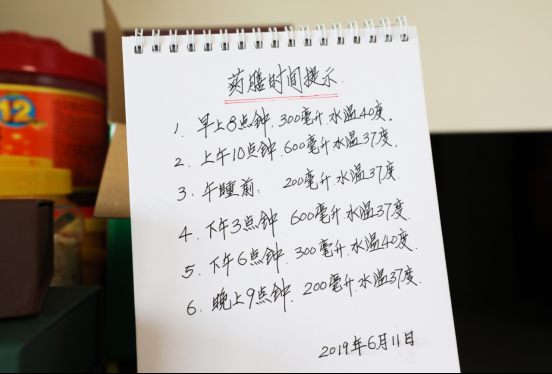 12
药膳时间提示.
1. 早上8点钟. 300毫升.水温40度。
2. 上午10点钟. 600毫升.水温37度.
3. 午睡前. 200毫升.水温37度.
4. 下午3点钟 600毫升.水温37度.
5. 下午6点钟. 300毫升.水温40度.
6. 晚上9点钟. 200毫升.水温37度.
2019年6月11日